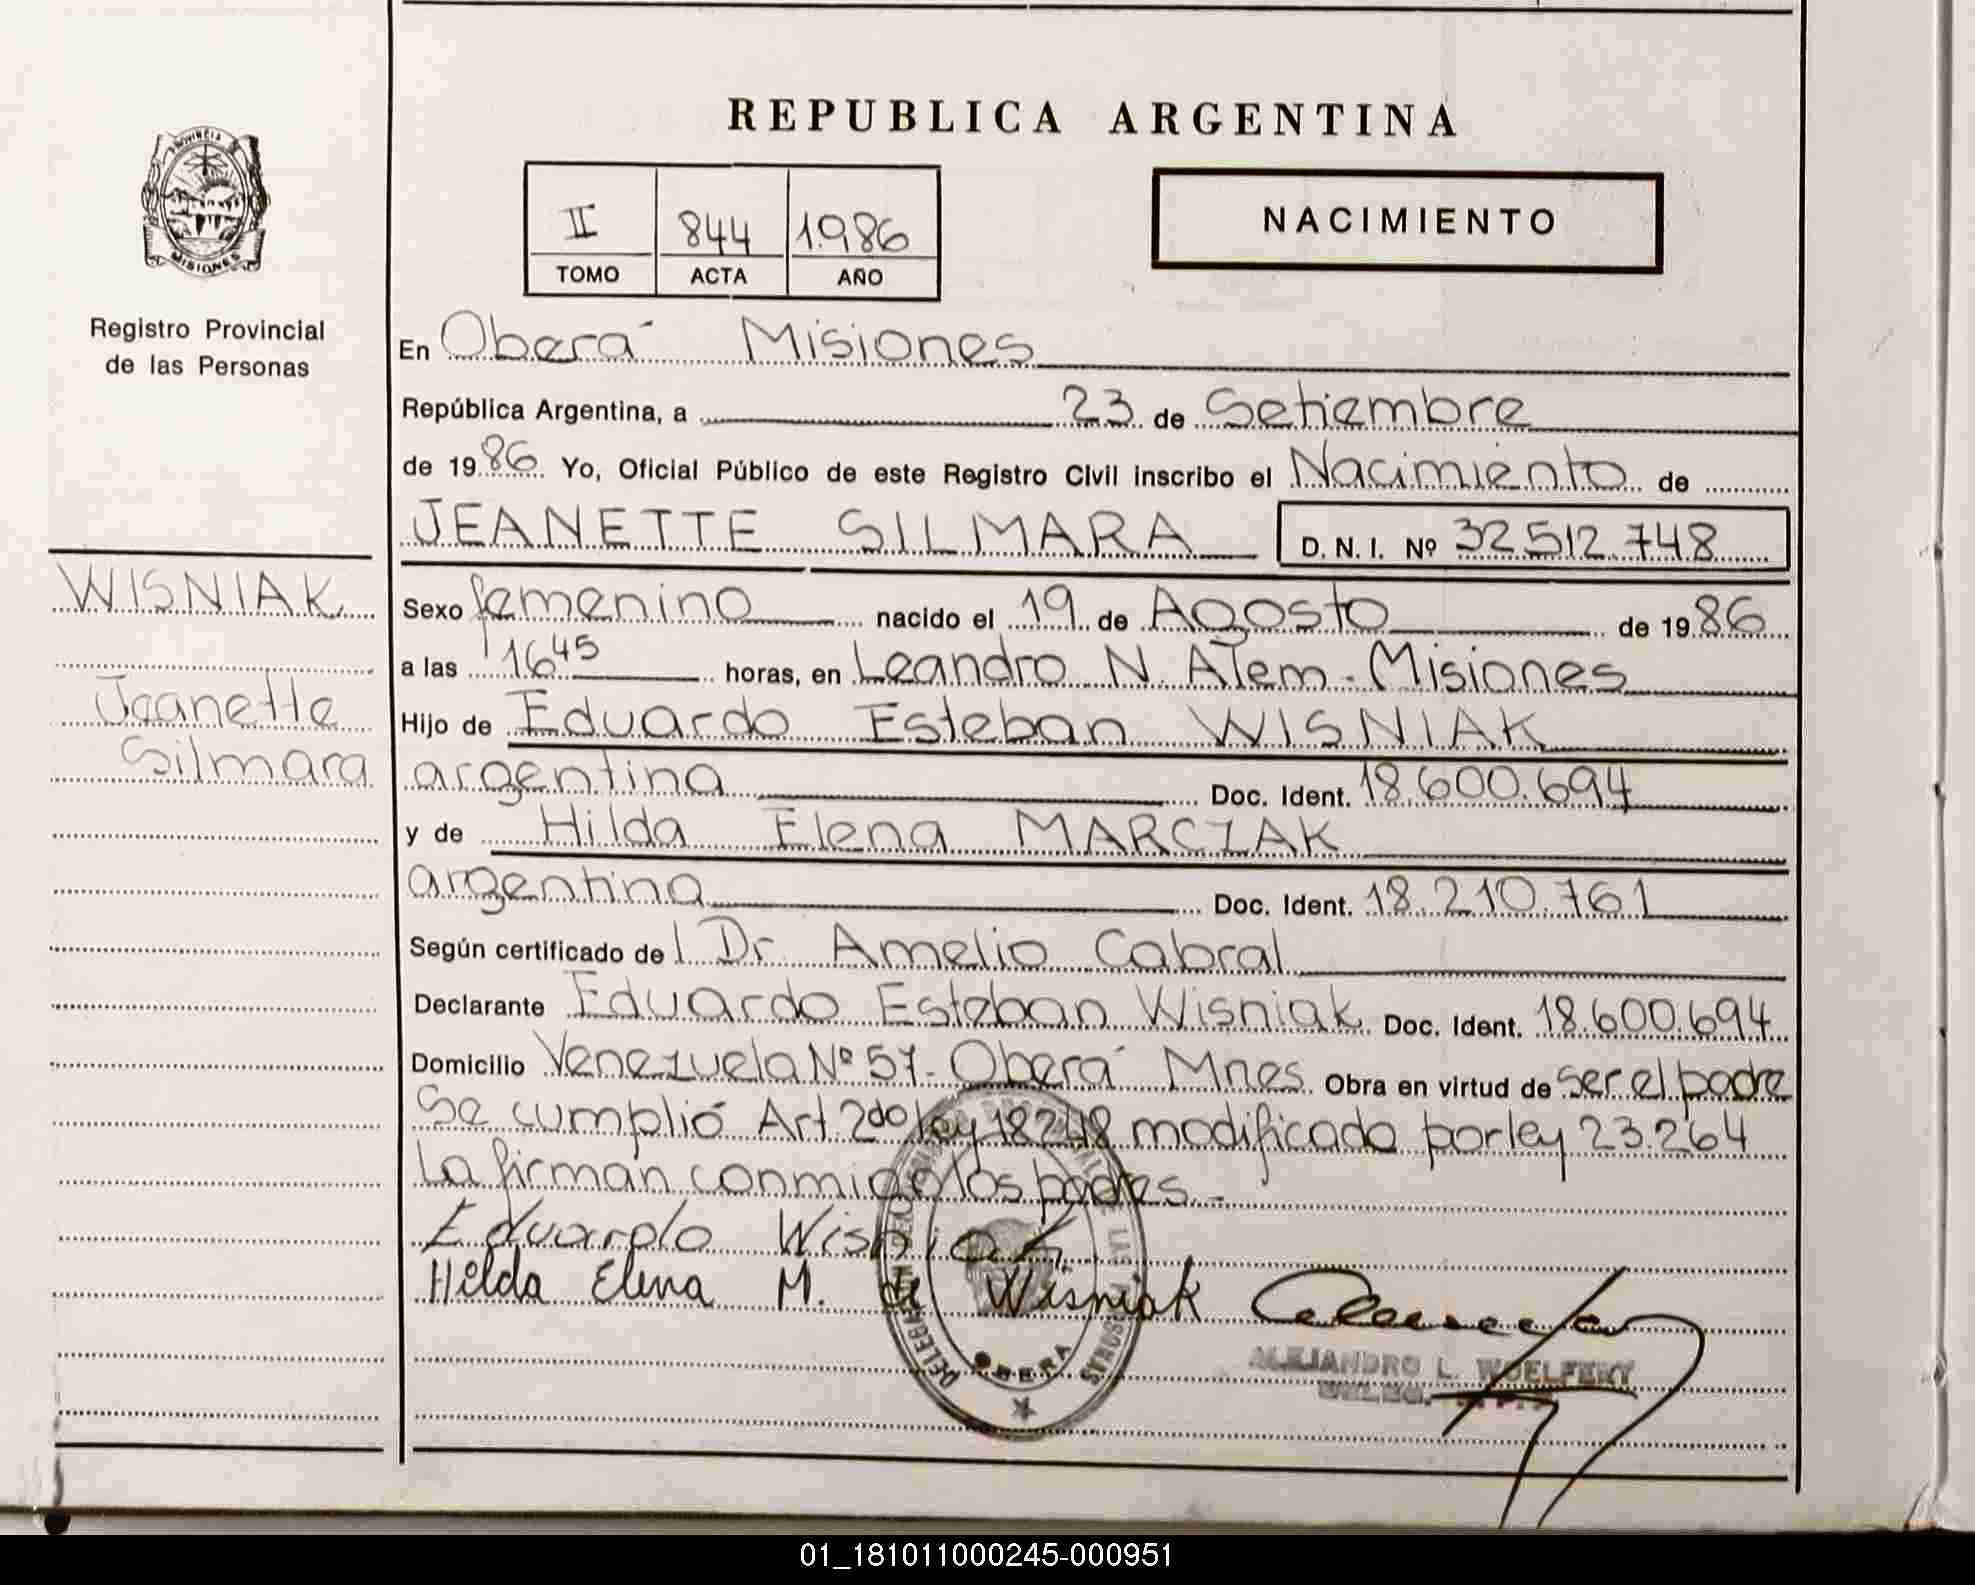 REPUBLICA ARGENTINA
PROVINCIA
MISIONES
Registro Provincial
de las Personas
II 844 1.986
TOMO ACTA AÑO
NACIMIENTO
En Oberá Misiones
República Argentina, a 23 de Setiembre
de 1986 Yo, Oficial Público de este Registro Civil inscribo el Nacimiento de
JEANETTE SILMARA D.N.I. Nº 32.512.748
WISNIAK
Jeanette
Silmara
Sexo femenino nacido el 19 de Agosto de 1986
a las 16 45 horas, en Leandro N. Alem - Misiones
Hijo de Eduardo Esteban WISNIAK
argentina Doc. Ident. 18.600.694
y de Hilda Elena MARCZAK
argentina Doc. Ident. 18.210.761
Según certificado de l Dr. Amelio Cabral
Declarante Eduardo Esteban Wisniak Doc. Ident. 18.600.694
Domicilio Venezuela Nº 57- Oberá Mnes. Obra en virtud de ser el padre
Se cumplió Art. 2do ley 18248 modificado por ley 23.264
La firman conmigo los padres.-
Eduardo Wisniak
Hilda Elena M. de Wisniak
OBERA
ALEJANDRO L. WOELFERT
01_181011000245-000951